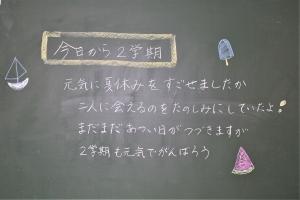 今日から2学期
元気に夏休みをすごせましたか
二人に会えるのをたのしみにしていたよ!
まだまだあつい日がつづきますが
2学期も元気でがんばろう